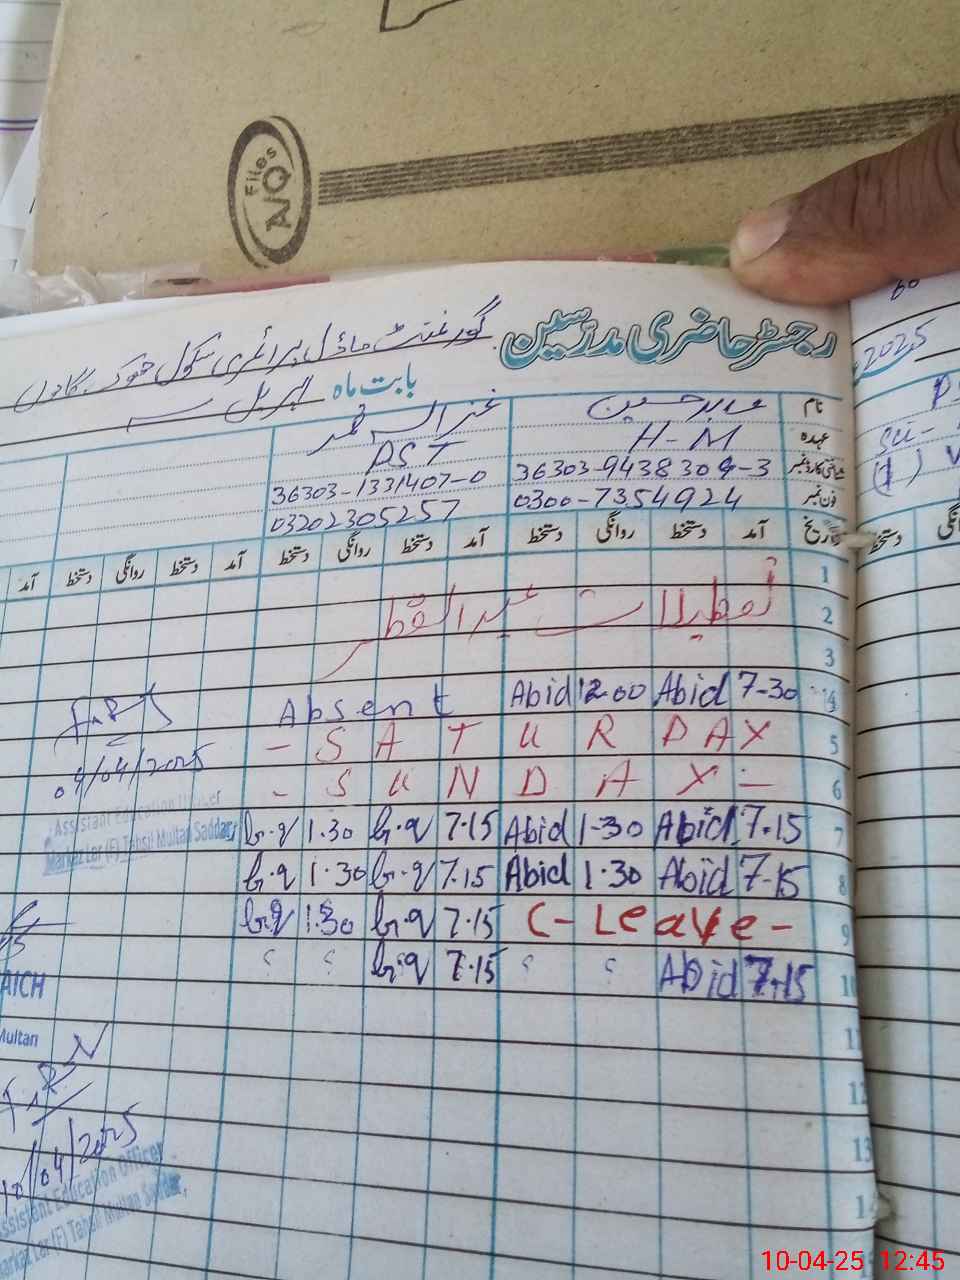 Files
A/Q
رجسٹر حاضری مدرسین گورنمنٹ ماڈل پرائمری سکول
2025
بابت ماہ اپریل
نام عابد حسین
عہدہ H-M PST
36303-9438304-3 36303-1331407-0
فون نمبر 0300-7354924 03202305257
تاریخ آمد دستخط روانگی دستخط آمد دستخط روانگی دستخط آمد دستخط روانگی دستخط آمد
1
2 تعطیلات عید الفطر
3
4 7-30 Abid 12-00 Abid Absent
5 - SATURDAY
6 - SUNDAY -
04/04/2025
Assistant Education Officer
Markaz Lar (F) Tahsil Multan Saddar,
7 7.15 Abid 1-30 Abid 7.15 1.30
8 7-15 Abid 1.30 Abid 7.15 1.30
9 C-Leave- 7.15 1.30
10 7.15 Abid 7.15
AICH
Multan
11
12
13
14
10/04/2025
Assistant Education Officer
Markaz Lar (F) Tahsil Multan Saddar,
10-04-25 12:45